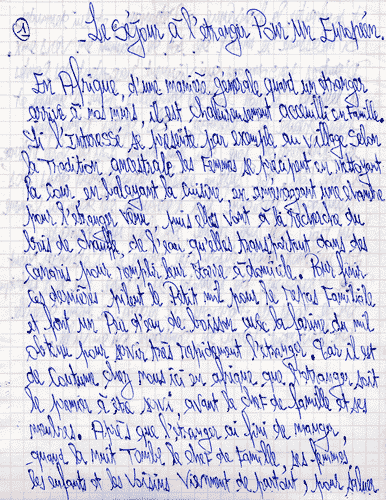 1
- Le Séjour à l'étranger Pour Un Européen.
En Afrique, d'une manière générale quand un étranger
arrive à nos murs, il est chaleureusement accueilli en famille.
Si l'Intéressé se présente par exemple au village Selon
la Tradition ancestrale les Femmes se précipitent en nettoyant
la cour, en balayant la cuisine, en aménageant une chambre
pour l'étranger venu, puis elles vont à la recherche du
bois de chauffe, de l'eau qu'elles transportent dans des
canaris pour remplir leur jarre à domicile. Pour finir
ces dernières pilent le Petit mil pour le repas Familiale
et font un Peu d'eau de boisson avec la farine du mil
obtenu pour servir très rapidement l'étranger. Car il est
de coutume chez nous ici en afrique que l'étranger soit
le premier à être servi, avant le chef de famille et ses
membres. Après que l'étranger ai fini de manger,
quand la nuit Tombe le chef de famille, ses femmes,
les enfants et les Voisins Viennent de partout, pour saluer